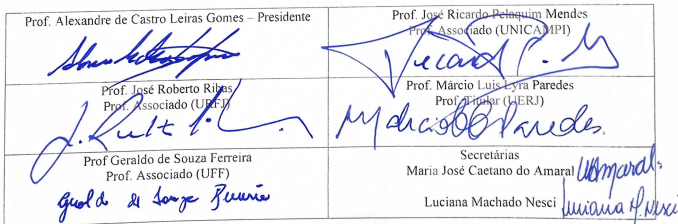 Prof. Alexandre de Castro Leiras Gomes – Presidente
Prof. José Ricardo Pelaquim Mendes
Prof. Associado (UNICAMPI)
Prof. José Roberto Ribas
Prof. Associado (UFRJ)
Prof. Márcio Luis Lyra Paredes
Prof. Titular (UERJ)
Marcio Paredes.
Prof Geraldo de Souza Ferreira
Prof. Associado (UFF)
Geraldo de Souza Ferreira
Secretárias
Maria José Caetano do Amaral
Amaral
Luciana Machado Nesci
Luciana M. Nesci